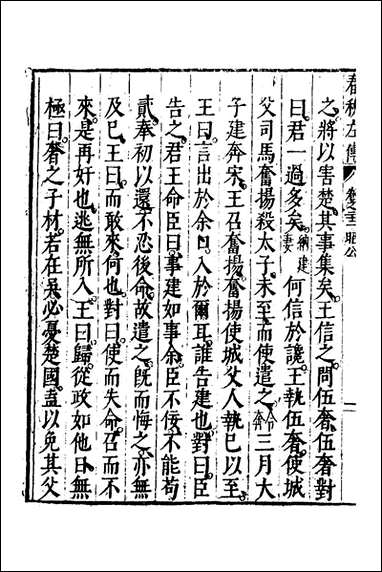 春秋左傳 卷之 昭公
之將以害楚其事集矣王信之問伍奢伍奢對
曰君一過多矣納建妻何信於讒王執伍奢使城
父司馬奮揚殺太子未至而使遣之令奔三月大
子建奔宋王召奮揚奮揚使城父人執已以至
王曰言出於余口入於爾耳誰告建也對曰臣
告之君王命臣曰事建如事余臣不佞不能苟
貳奉初以還不忍後命故遣之旣而悔之亦無
及已王曰而敢來何也對曰使而失命召而不
來是再奸也逃無所入王曰歸從政如他日無
極曰奢之子材若在吳必憂楚國盍以免其父